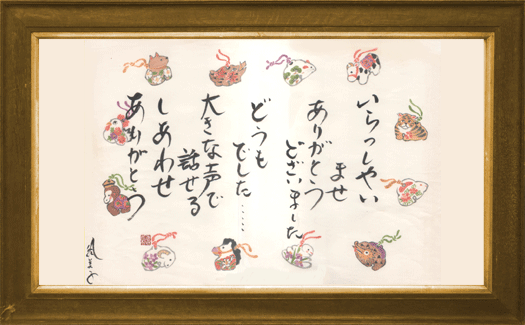 いらっしゃい
ませ
ありがとう
ございました
どうも
でした……
大きな声で
話せる
しあわせ
ありがとう